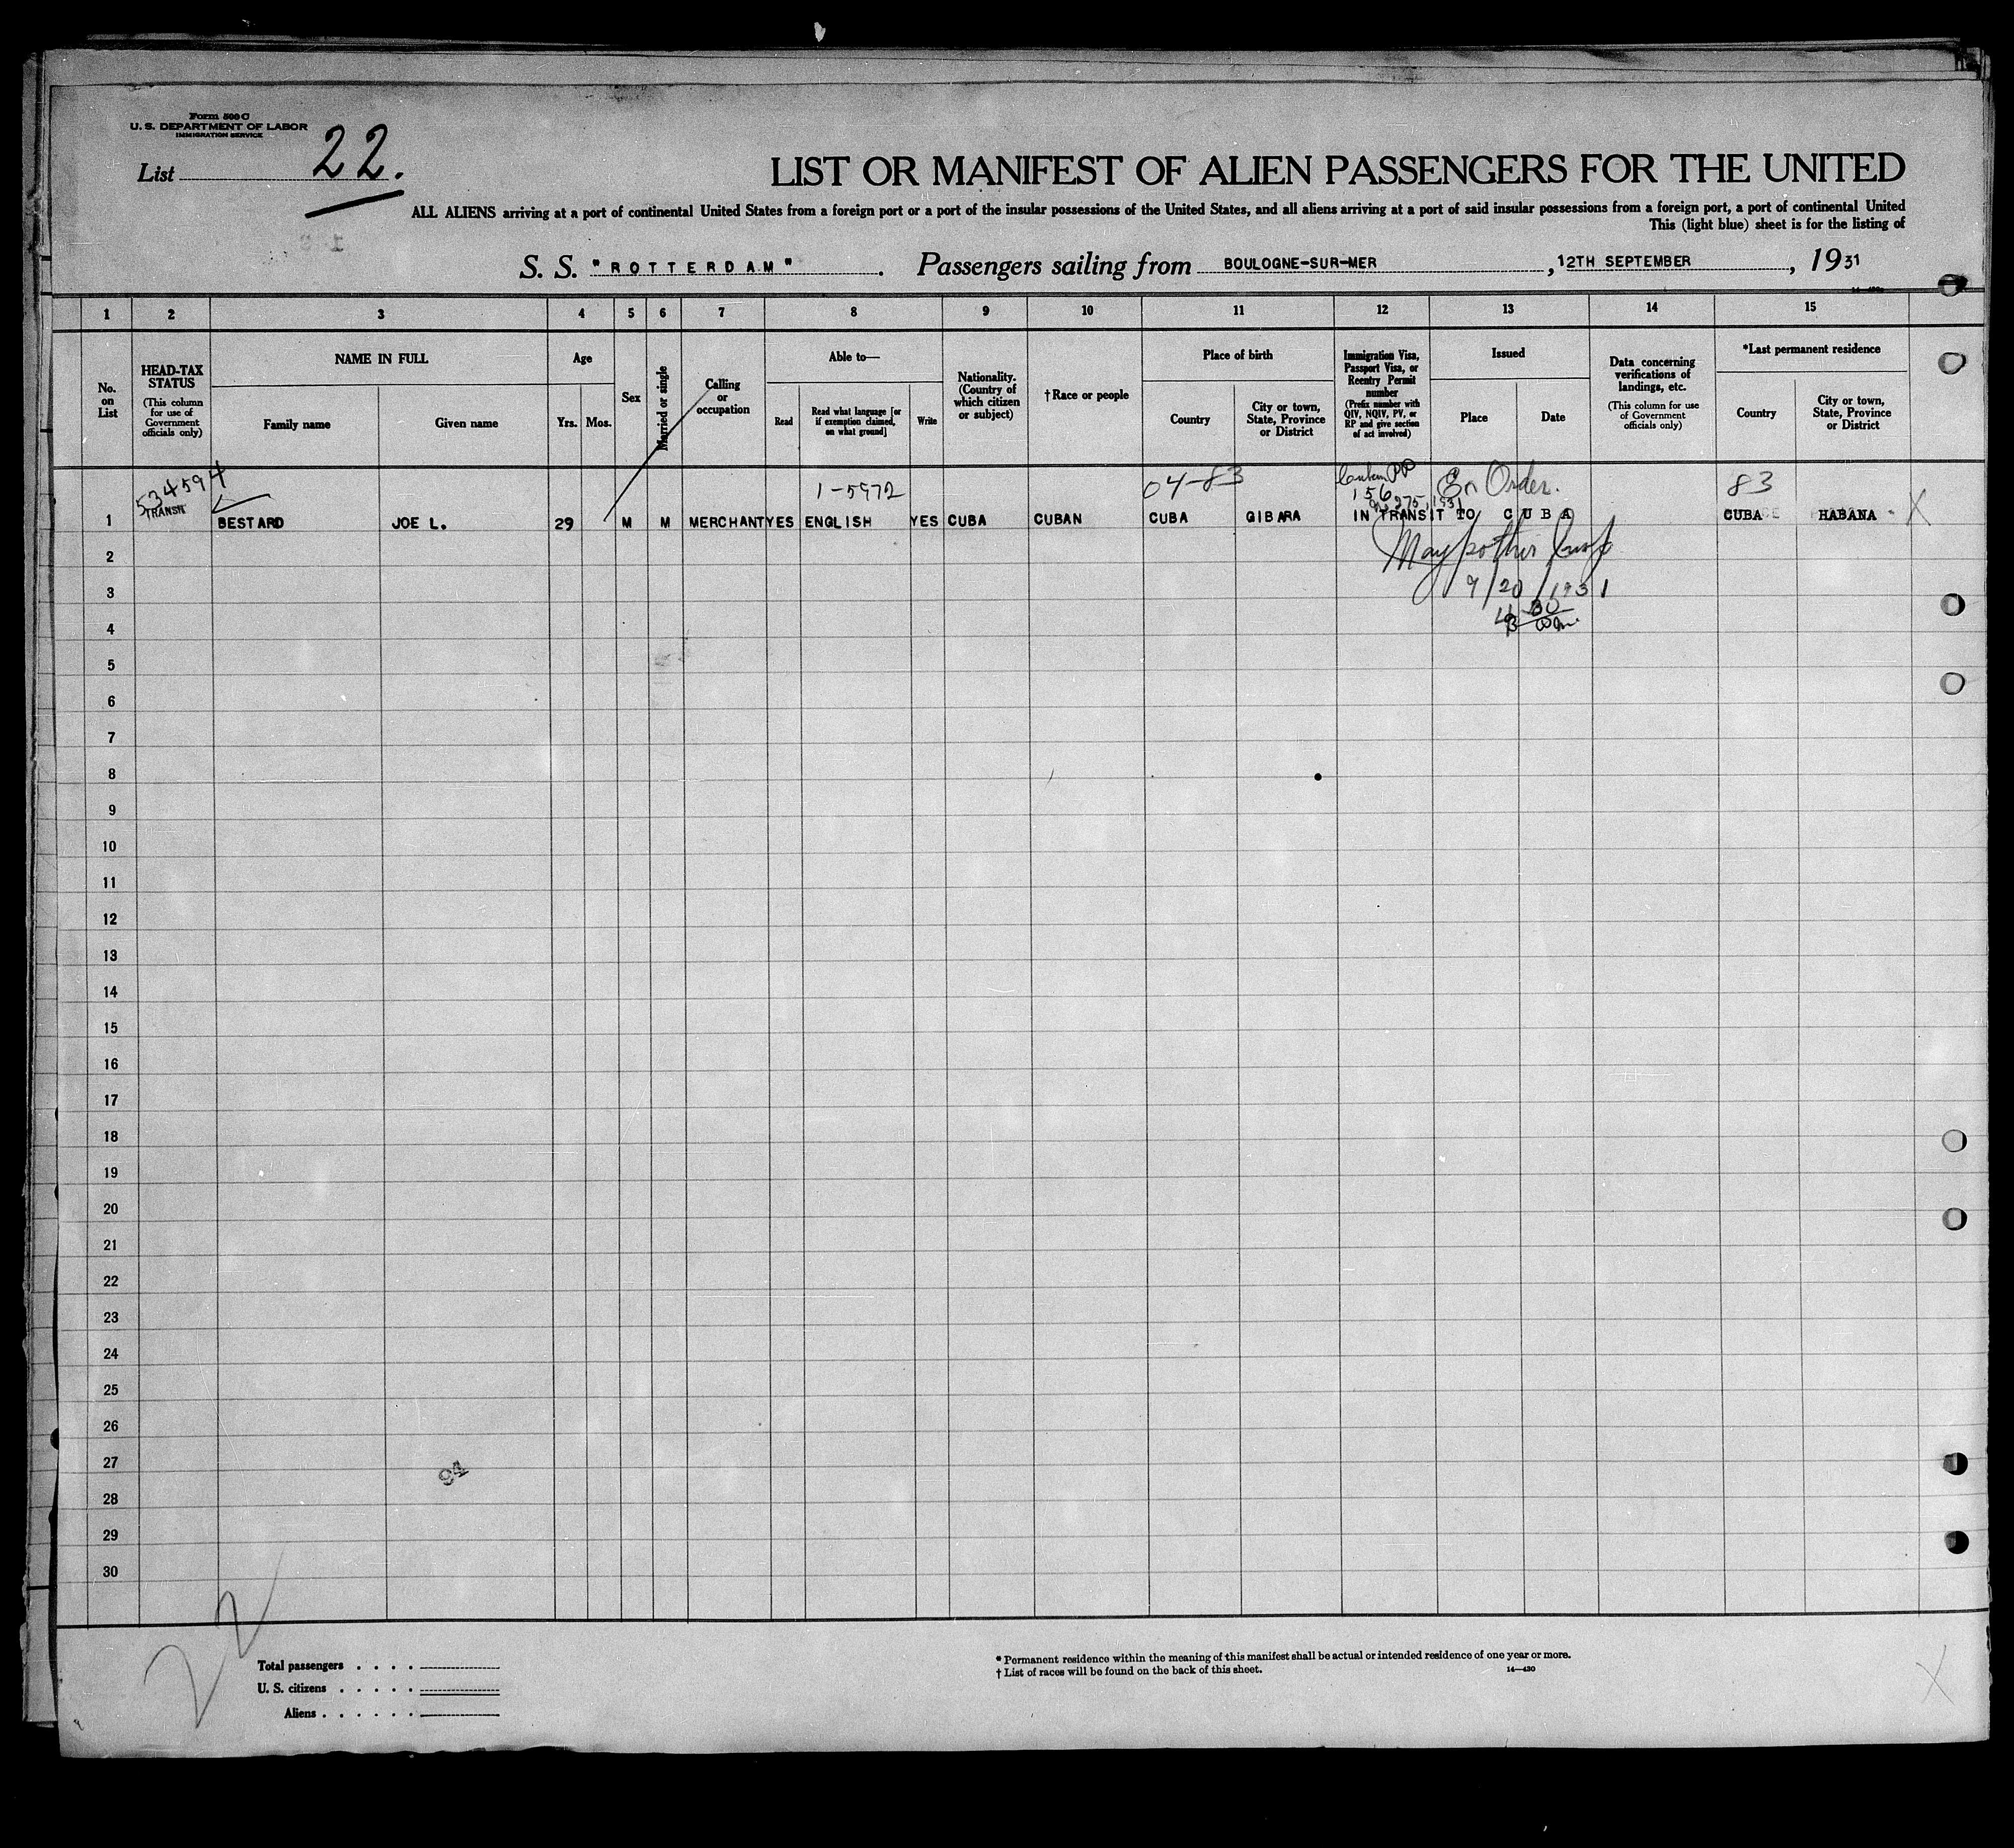 Form 500 C
U. S. DEPARTMENT OF LABOR
IMMIGRATION SERVICE
List 22.
LIST OR MANIFEST OF ALIEN PASSENGERS FOR THE UNITED
ALL ALIENS arriving at a port of continental United States from a foreign port or a port of the insular possessions of the United States, and all aliens arriving at a port of said insular possessions from a foreign port, a port of continental United
This (light blue) sheet is for the listing of
S. S. "ROTTERDAM". Passengers sailing from BOULOGNE-SUR-MER, 12TH SEPTEMBER, 1931
1 2 3 4 5 6 7 8 9 10 11 12 13 14 15
No. on List
HEAD-TAX STATUS
(This column for use of Government officials only)
NAME IN FULL
Family name
Given name
Age
Yrs.
Mos.
Sex
Married or single
Calling or occupation
Able to—
Read
Read what language [or if exemption claimed, on what ground]
Write
Nationality. (Country of which citizen or subject)
†Race or people
Place of birth
Country
City or town, State, Province or District
Immigration Visa, Passport Visa, or Reentry Permit number
(Prefix number with QIV, NQIV, PV, or RP and give section of act involved)
Issued
Place
Date
Data concerning verifications of landings, etc.
(This column for use of Government officials only)
*Last permanent residence
Country
City or town, State, Province or District
534594
TRANSIT
1-5972
04-83
Cuban PP
156
83
1 BESTARD JOE L. 29 M M MERCHANT YES ENGLISH YES CUBA CUBAN CUBA GIBARA IN TRANSIT TO CUBA CUBA HABANA X
2
9/20/1931
3
30
4
5
6
7
8
9
10
11
12
13
14
15
16
17
18
19
20
21
22
23
24
25
26
27
94
28
29
30
22
Total passengers . . . .
U. S. citizens . . . . .
Aliens . . . . . .
* Permanent residence within the meaning of this manifest shall be actual or intended residence of one year or more.
† List of races will be found on the back of this sheet. 14—430
X